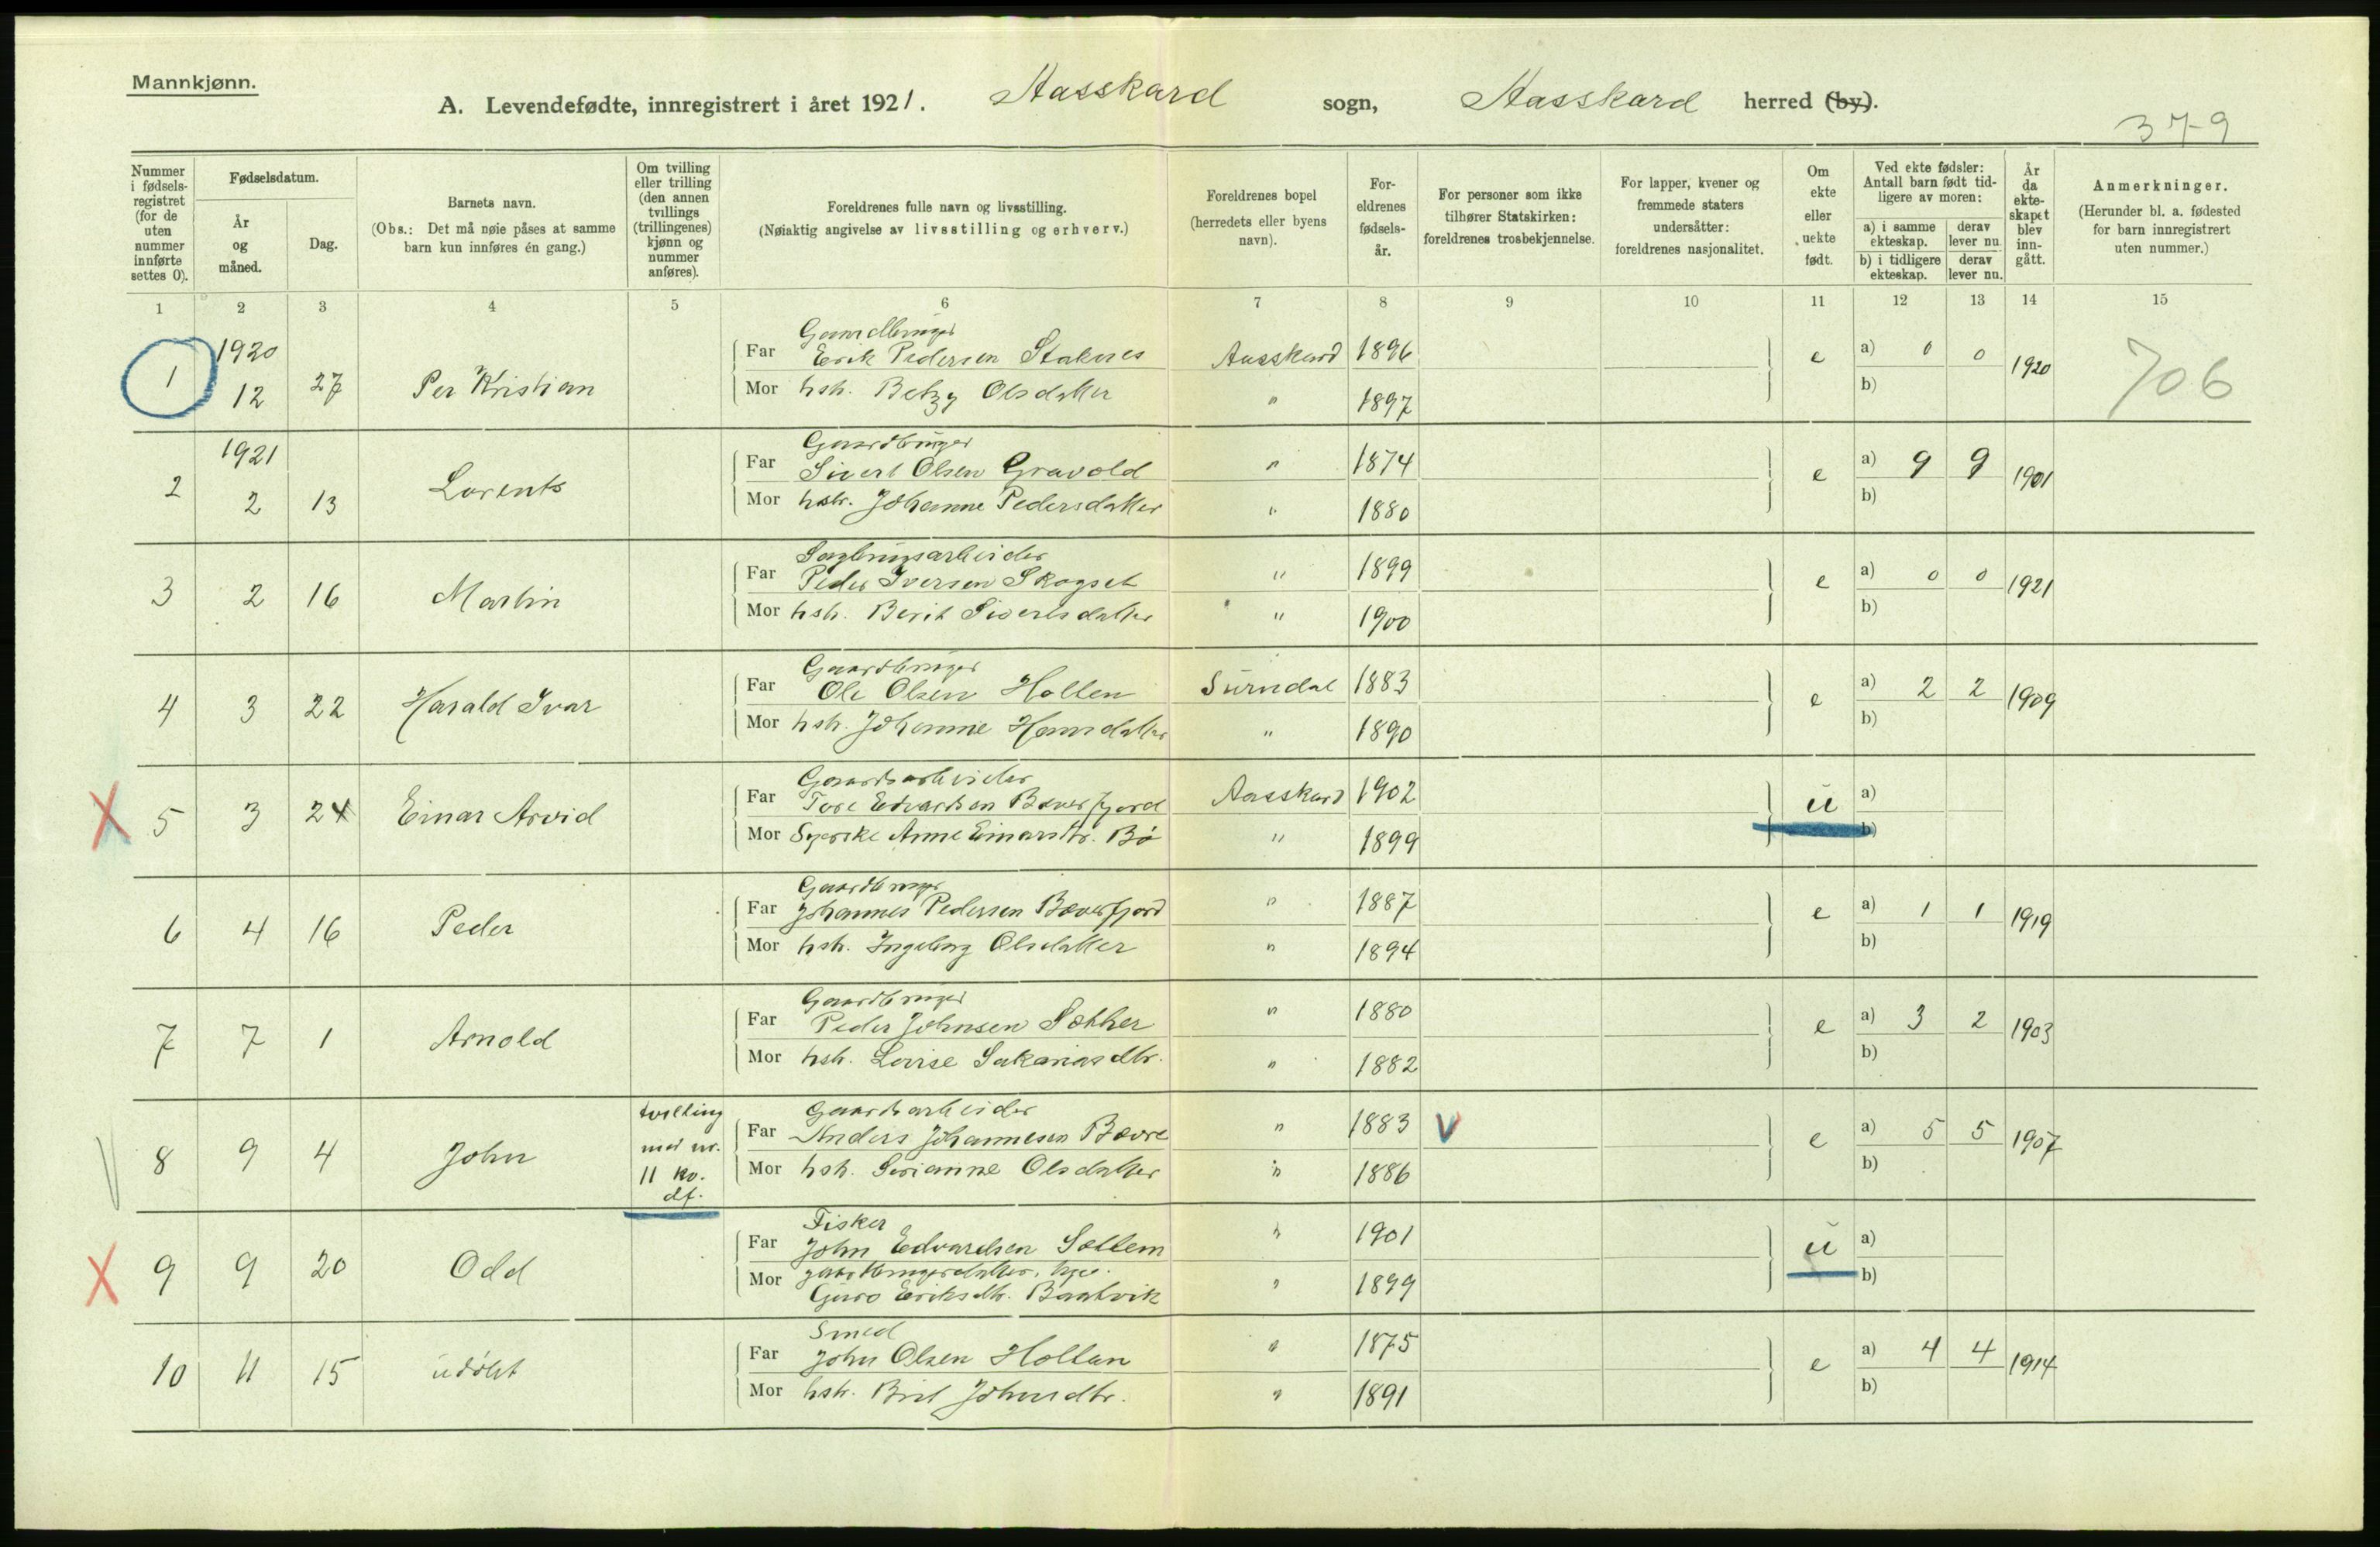 Mannkjønn.
A. Levendefødte, innregistrert i året 1921. Aasskard sogn, Aasskard herred (by).
379
Nummer i fødselsregistret (for de uten nummer innførte settes 0).
Fødselsdatum.
År og måned.
Dag.
Barnets navn.
(Obs.: Det må nøie påses at samme barn kun innføres én gang.)
Om tvilling eller trilling (den annen tvillings (trillingenes) kjønn og nummer anføres).
Foreldrenes fulle navn og livsstilling.
(Nøiaktig angivelse av livsstilling og erhverv.)
Foreldrenes bopel (herredets eller byens navn).
Foreldrenes fødselsår.
For personer som ikke tilhører Statskirken: foreldrenes trosbekjennelse.
For lapper, kvener og fremmede staters undersåtter: foreldrenes nasjonalitet.
Om ekte eller uekte født.
Ved ekte fødsler: Antall barn født tidligere av moren:
a) i samme ekteskap. derav lever nu.
b) i tidligere ekteskap. derav lever nu.
År da ekteskapet blev inngått.
Anmerkninger.
(Herunder bl. a. fødested for barn innregistrert uten nummer.)
1 2 3 4 5 6 7 8 9 10 11 12 13 14 15
Gaardbruger
1 1920 12 27 Per Kristian Far Erik Pedersen Staknes Aasskard 1896 e a) 0 0 1920 706
Mor hstr. Betzy Olsdatter " 1897 b)
Gaardbruger
2 1921 2 13 Lorents Far Sivert Olsen Gravold " 1874 e a) 9 9 1901
Mor hstr. Johanne Pedersdatter " 1880 b)
Sagbrugsarbeider
3 2 16 Martin Far Peder Iversen Skogset " 1899 e a) 0 0 1921
Mor hstr. Berit Sivertsdatter " 1900 b)
Gaardbruger
4 3 22 Harald Ivar Far Ole Olsen Hollen Surndal 1883 e a) 2 2 1909
Mor hstr. Johanne Hansdatter " 1890 b)
Gaardsarbeider
X 5 3 24 Einar Arvid Far Tore Edvardsen Bæverfjord Aasskard 1902 u a)
Mor Syerske Anne Einarsdtr. Bø " 1899 b)
Gaardbruger
6 4 16 Peder Far Johannes Pedersen Bæverfjord " 1887 e a) 1 1 1919
Mor hstr. Ingeborg Olsdatter " 1894 b)
Gaardbruger
7 7 1 Arnold Far Peder Johnsen Sæther " 1880 e a) 3 2 1903
Mor hstr. Lovise Sakariasdtr. " 1882 b)
Gaardsarbeider
8 9 4 John tvilling med nr. 11 kv. df. Far Anders Johannesen Bævre " 1883 V e a) 5 5 1907
Mor hstr. Serianne Olsdatter " 1886 b)
Fisker
X 9 9 20 Odd Far John Edvardsen Sollem " 1901 u a)
Mor gaardbrugerdatter,
Guro Eriksdtr. Baatvik " 1899 b)
Smed
10 11 15 udøbt Far John Olsen Hollan " 1875 e a) 4 4 1914
Mor hstr. Brit Johnsdtr. " 1891 b)